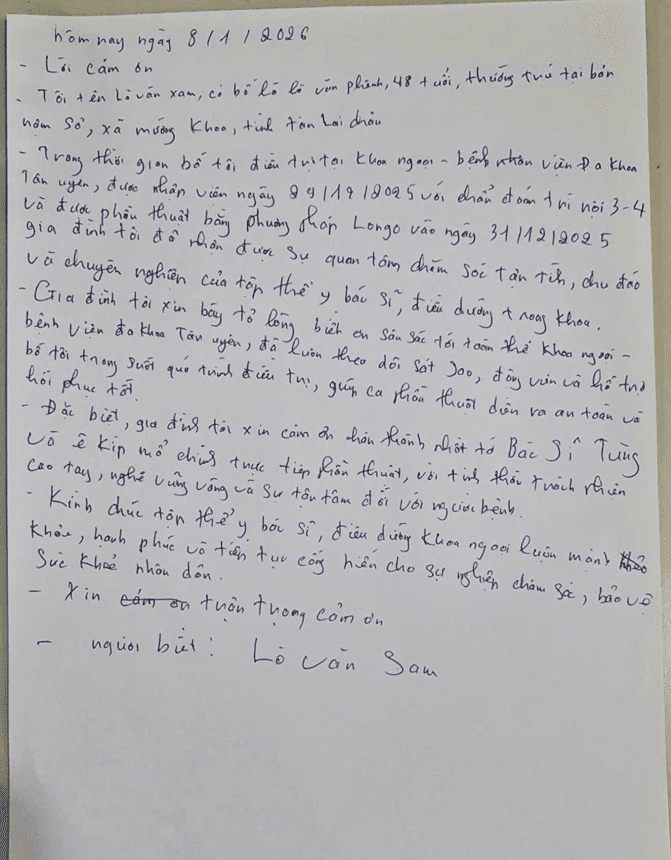 hôm nay ngày 8/1/2026
- Lời cảm ơn
- Tôi tên Lò văn xam, có bố là lò văn phành, 48 tuổi, thường trú tại bản
nằm Sỏ, xã mường Khoa, tỉnh Lai châu
- Trong thời gian bố tôi điều trị tại Khoa ngoại - bệnh viện Đa Khoa
Tân uyên, được nhập viện ngày /12/2025 với chẩn đoán trĩ nội 3-4
và được phẫu thuật bằng phương pháp Longo vào ngày 31/12/2025
gia đình tôi đã nhận được sự quan tâm, chăm sóc tận tình, chu đáo
và chuyên nghiệp của tập thể y bác sĩ, điều dưỡng trong khoa.
- Gia đình tôi xin bày tỏ lòng biết ơn sâu sắc tới toàn thể Khoa ngoại -
bệnh viện đa khoa Tân uyên, đã luôn theo dõi sát sao, động viên và hỗ trợ
bố tôi trong suốt quá trình điều trị, giúp ca phẫu thuật diễn ra an toàn và
hồi phục tốt.
- Đặc biệt, gia đình tôi xin cảm ơn chân thành nhất tớ Bác Sĩ Tùng
và ê kíp mổ chính trực tiếp phẫu thuật, với tinh thần trách nhiên
cao tay, nghề vững vàng và sự tận tâm đối với người bệnh.
- Kính chúc tập thể y bác sĩ, điều dưỡng Khoa ngoại luôn mạnh
Khỏe, hạnh phúc và tiếp tục cống hiến cho sự nghiệp chăm sóc, bảo vệ
sức khoẻ nhân dân.
- Xin cảm ơn trận trọng cảm ơn
- người biết: Lò văn Sam